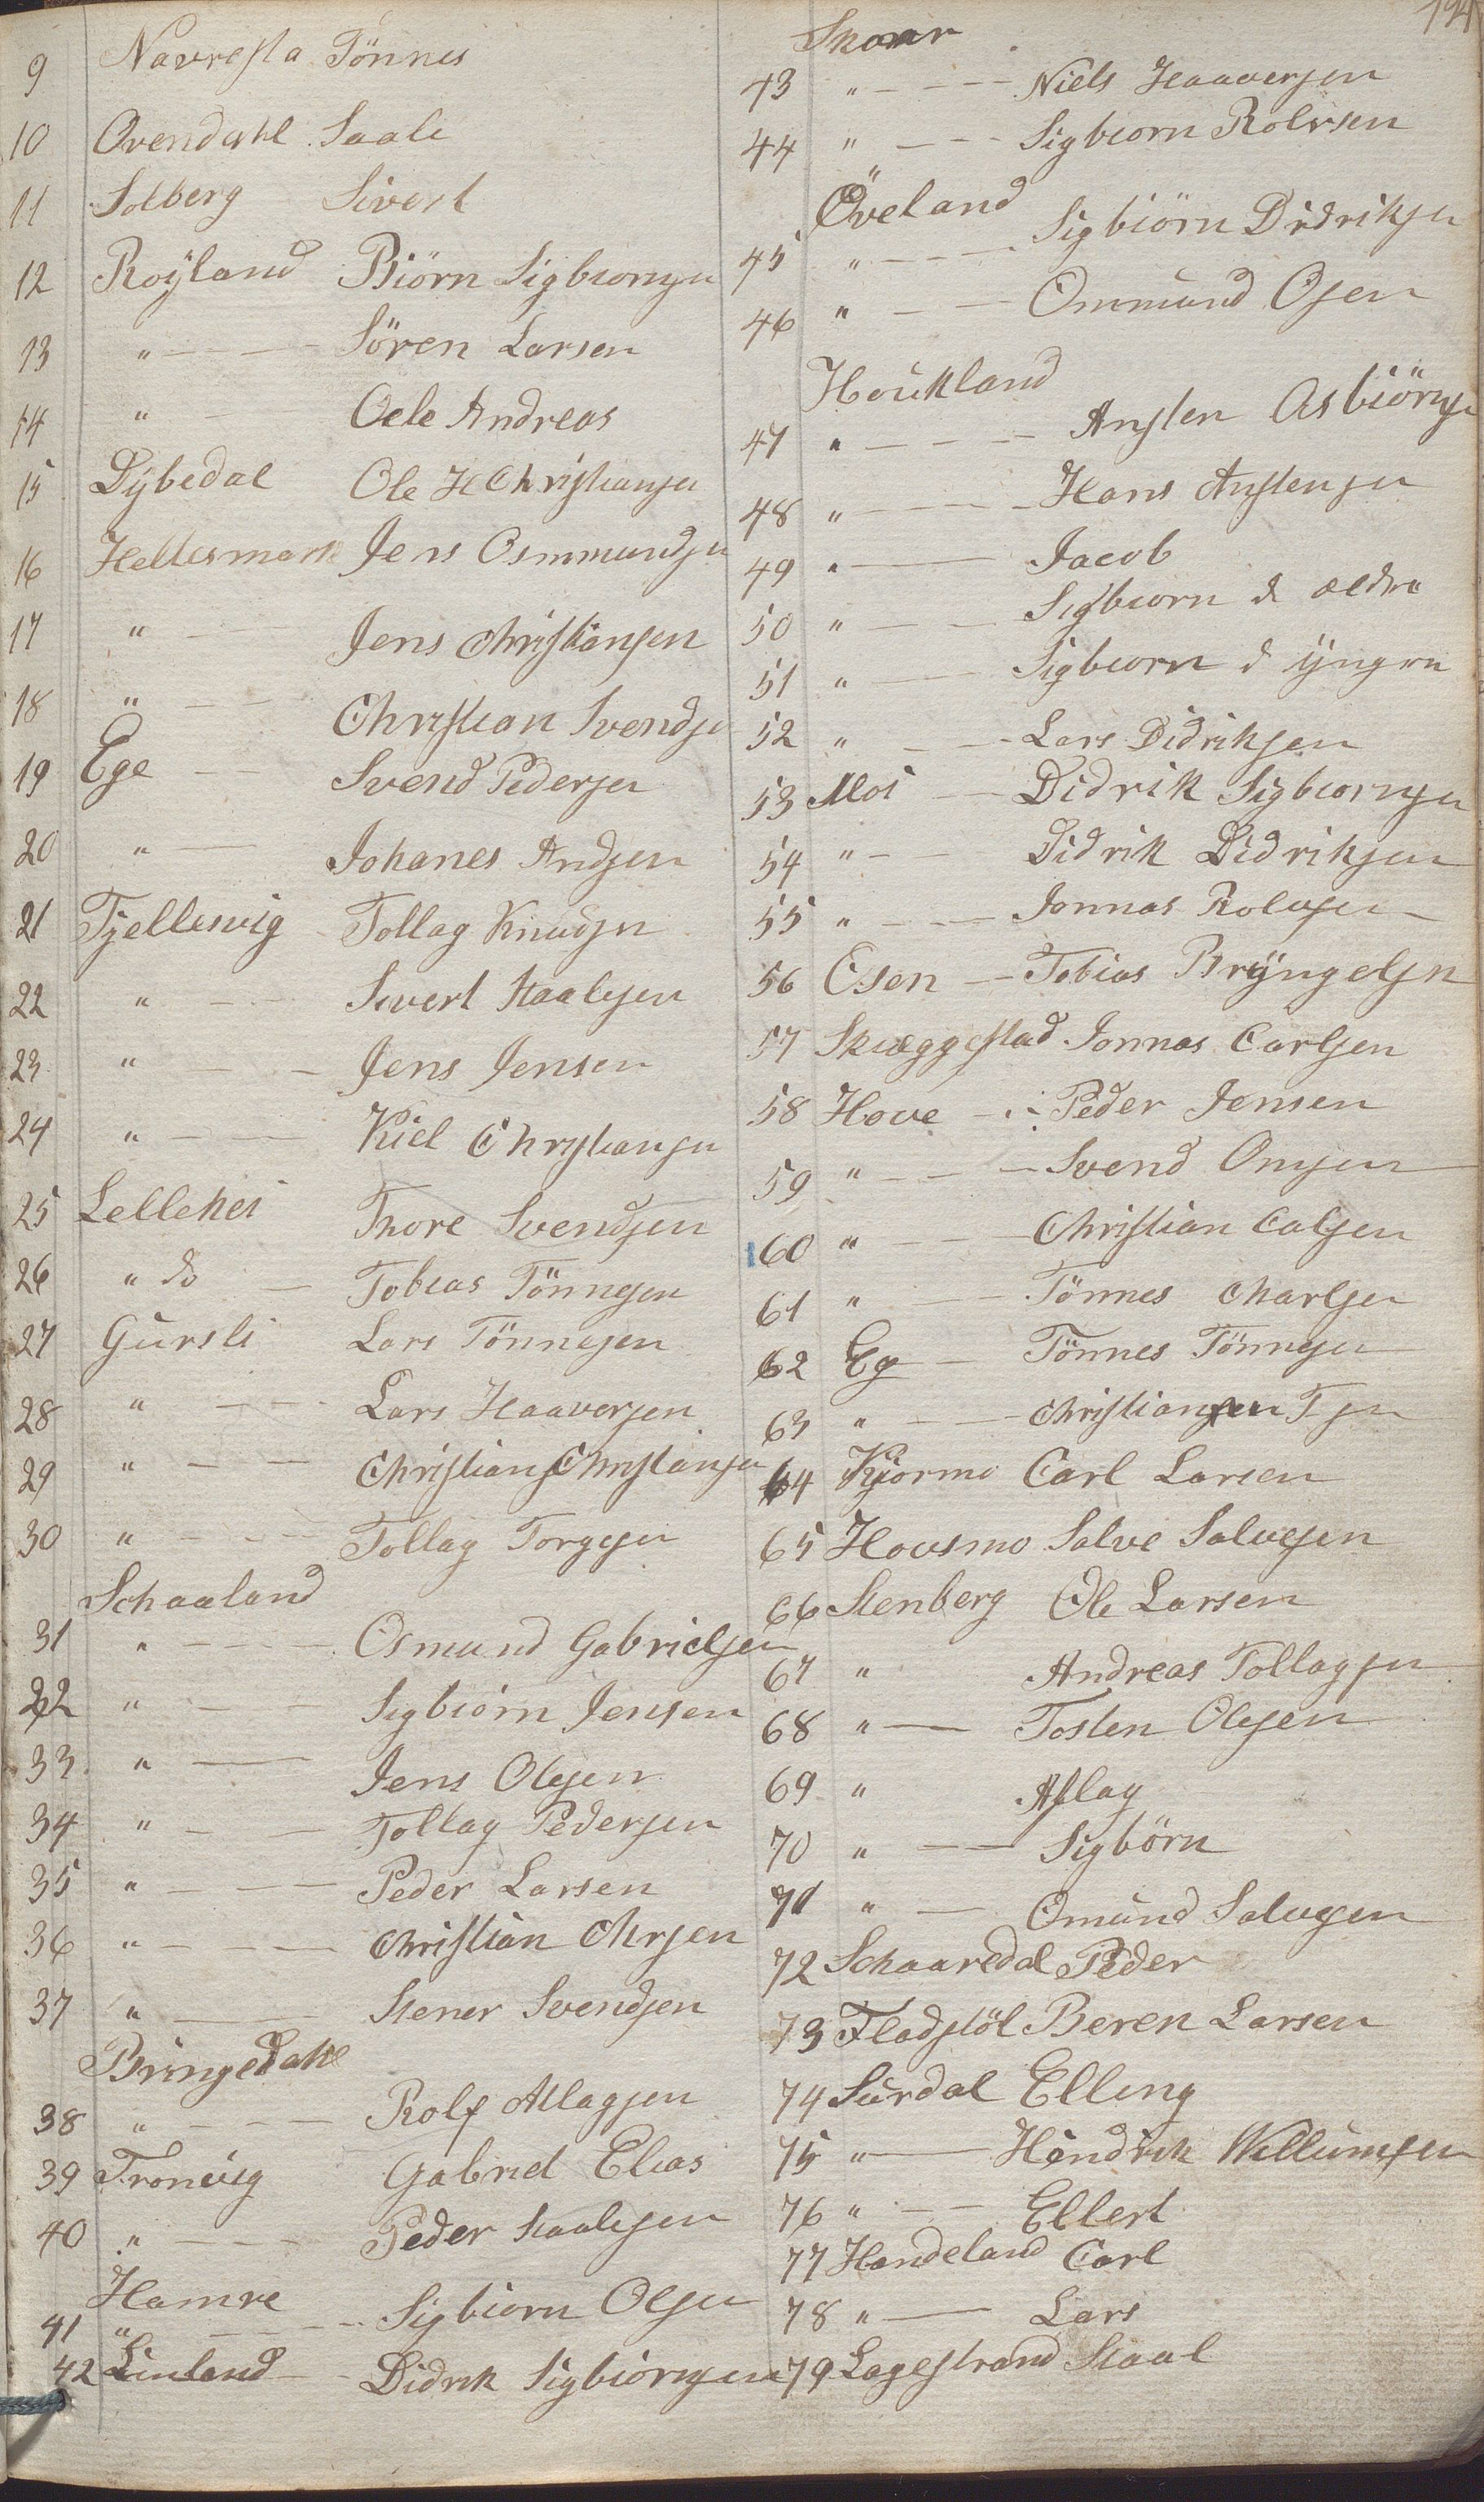 9 Navresta Tönnes
10 Ovendahl Saale
11 Solberg Sivert
12 Roÿland Biörn Sigbiornsen
13 " Sören Larsen
14 " Oele Andreas
15 Dÿbedal Ole H Christiansen
16 Hellesmark Jens Osmmundsen
17 " Jens Christiansen
18 " Christian Svendsen
19 Ege Svend Pedersen
20 " Johanes Andsen
21 Tjellesvig Tollag Knudsen
22 " Sivert Staalesen
23 " Jens Jensen
24 " Kiel Christiansen
25 Lellehei Thore Svendsen
26 " do Tobias Tönnesen
27 Gursli Lars Tönnesen
28 " Lars Haaversen
29 " Christian Christiansen
30 " Tollag Torgesen
Schaaland
31 " Osmund Gabrielsen
32 " Sigbiörn Jensen
33 " Jens Olesen
34 " Tollag Pedersen
35 " Peder Larsen
36 " Christian Chrsen
37 " Stener Svendsen
Bringedahl
38 " Rolf Atlagsen
39 Tronvig Gabriel Elias
40 " Peder Staalesen
Hamre
41 " Sigbiorn Olsen
42 Linland Didrik Sigbiörnsen
194
Skaar
43 " Niels Haaversen
44 " Sigbiorn Rolvsen
Öveland
45 " Sigbiörn Didriksen
46 " Ommund Osen
Houkland
47 " Ansten Asbiörnsen
48 " Hans Anstensen
49 " Jacob
50 " Sigbiorn d ældre
51 " Sigbiorn d ÿngre
52 " Lars Didriksen
53 Moi Didrik Sigbiornsen
54 " Didrik Didriksen
55 " Jonnas Rolvsen
56 Esen Tobias Brÿngelsen
57 Skuæggestad Jonnas Carlsen
58 Hove Peder Jensen
59 " Svend Omsen
60 " Christian Calsen
61 " Tönnes Charlsen
62 Eg Tönnes Tönnesen
63 " Christian T sen
64 Kjormo Carl Larsen
65 Hovsmo Salve Salvesen
66 Stenberg Ole Larsen
67 " Andreas Tollagsen
68 " Tosten Olesen
69 " Aslag
70 " Sigbörn
71 " Omund Salvesen
72 Schaaredal Peder
73 Fladstöl Beren Larsen
74 Surdal Elling
75 " Hendrik Willumsen
76 " Ellert
77 Handeland Carl
78 " Lars
79 Lagestrand Staal